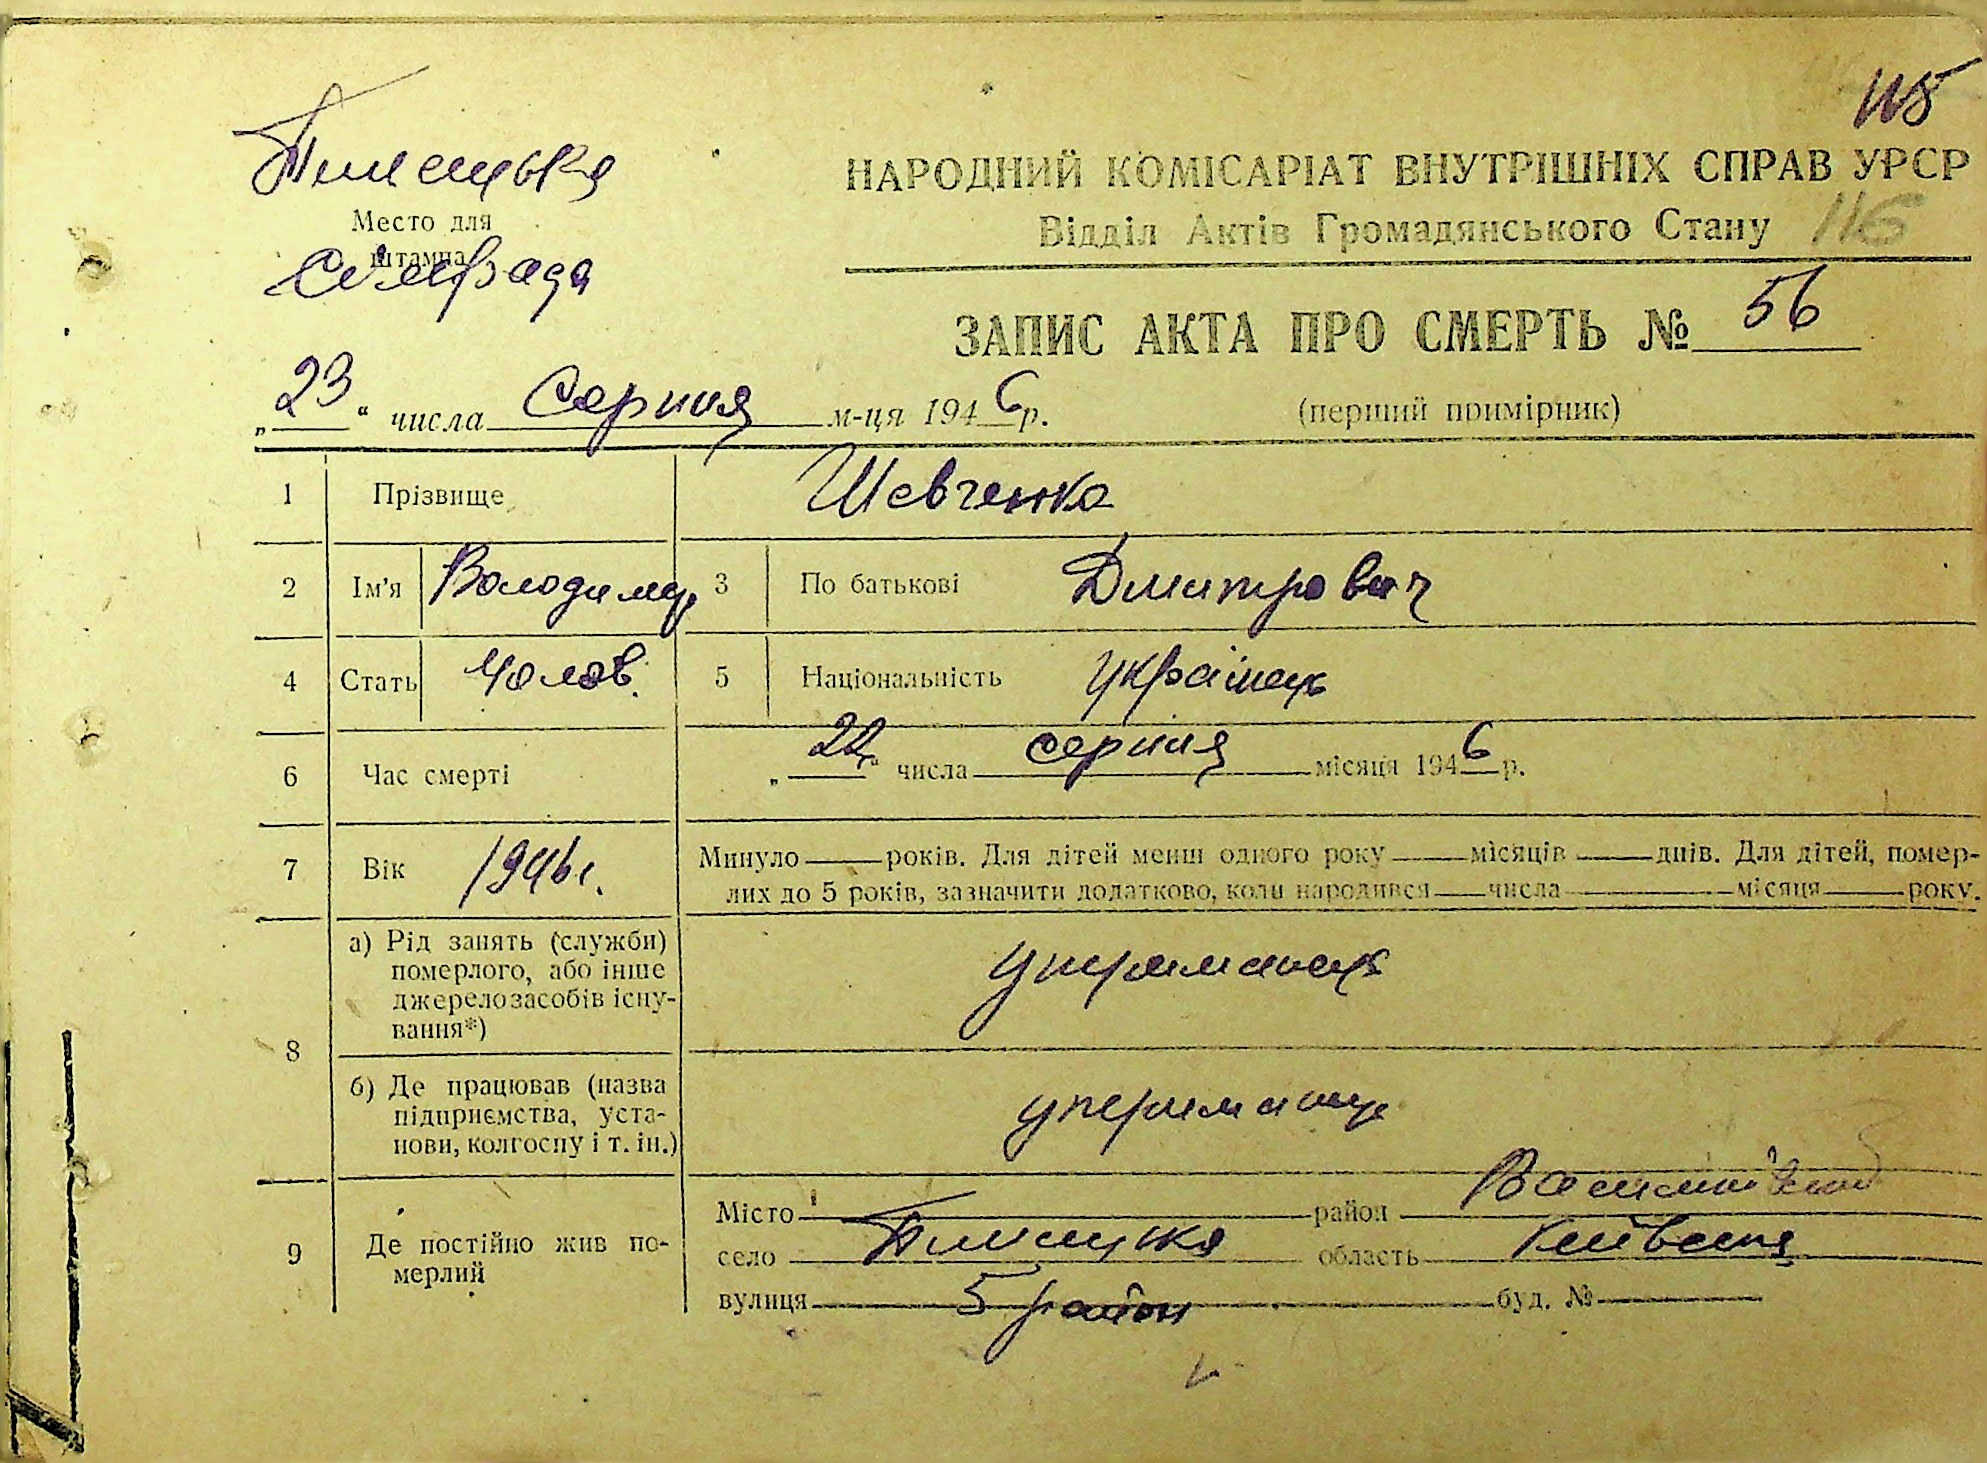 115
Плисецька
Место для
штампа
сільрада
НАРОДНИЙ КОМІСАРІАТ ВНУТРІШНІХ СПРАВ УРСР
Відділ Актів Громадянського Стану 116
ЗАПИС АКТА ПРО СМЕРТЬ № 56
„23“ числа Серпня м-ця 1946 р.
(перший примірник)
1 Прізвище Шевченко
2 Ім'я Володимир 3 По батькові Дмитрович
4 Стать Чолов. 5 Національність українець
6 Час смерті „22“ числа серпня місяця 1946 р.
7 Вік 1946 г. Минуло років. Для дітей менш одного року місяців днів. Для дітей, помер-
лих до 5 років, зазначити додатково, коли народився числа місяця року.
8 а) Рід занять (служби)
померлого, або інше
джерело засобів існу-
вання*)
утриманець
б) Де працював (назва
підприємства, уста-
нови, колгоспу і т. ін.)
утриманець
9 Де постійно жив по-
мерлий
Місто район Васильківський
село Плисецьке область Київська
вулиця 5 район буд. №